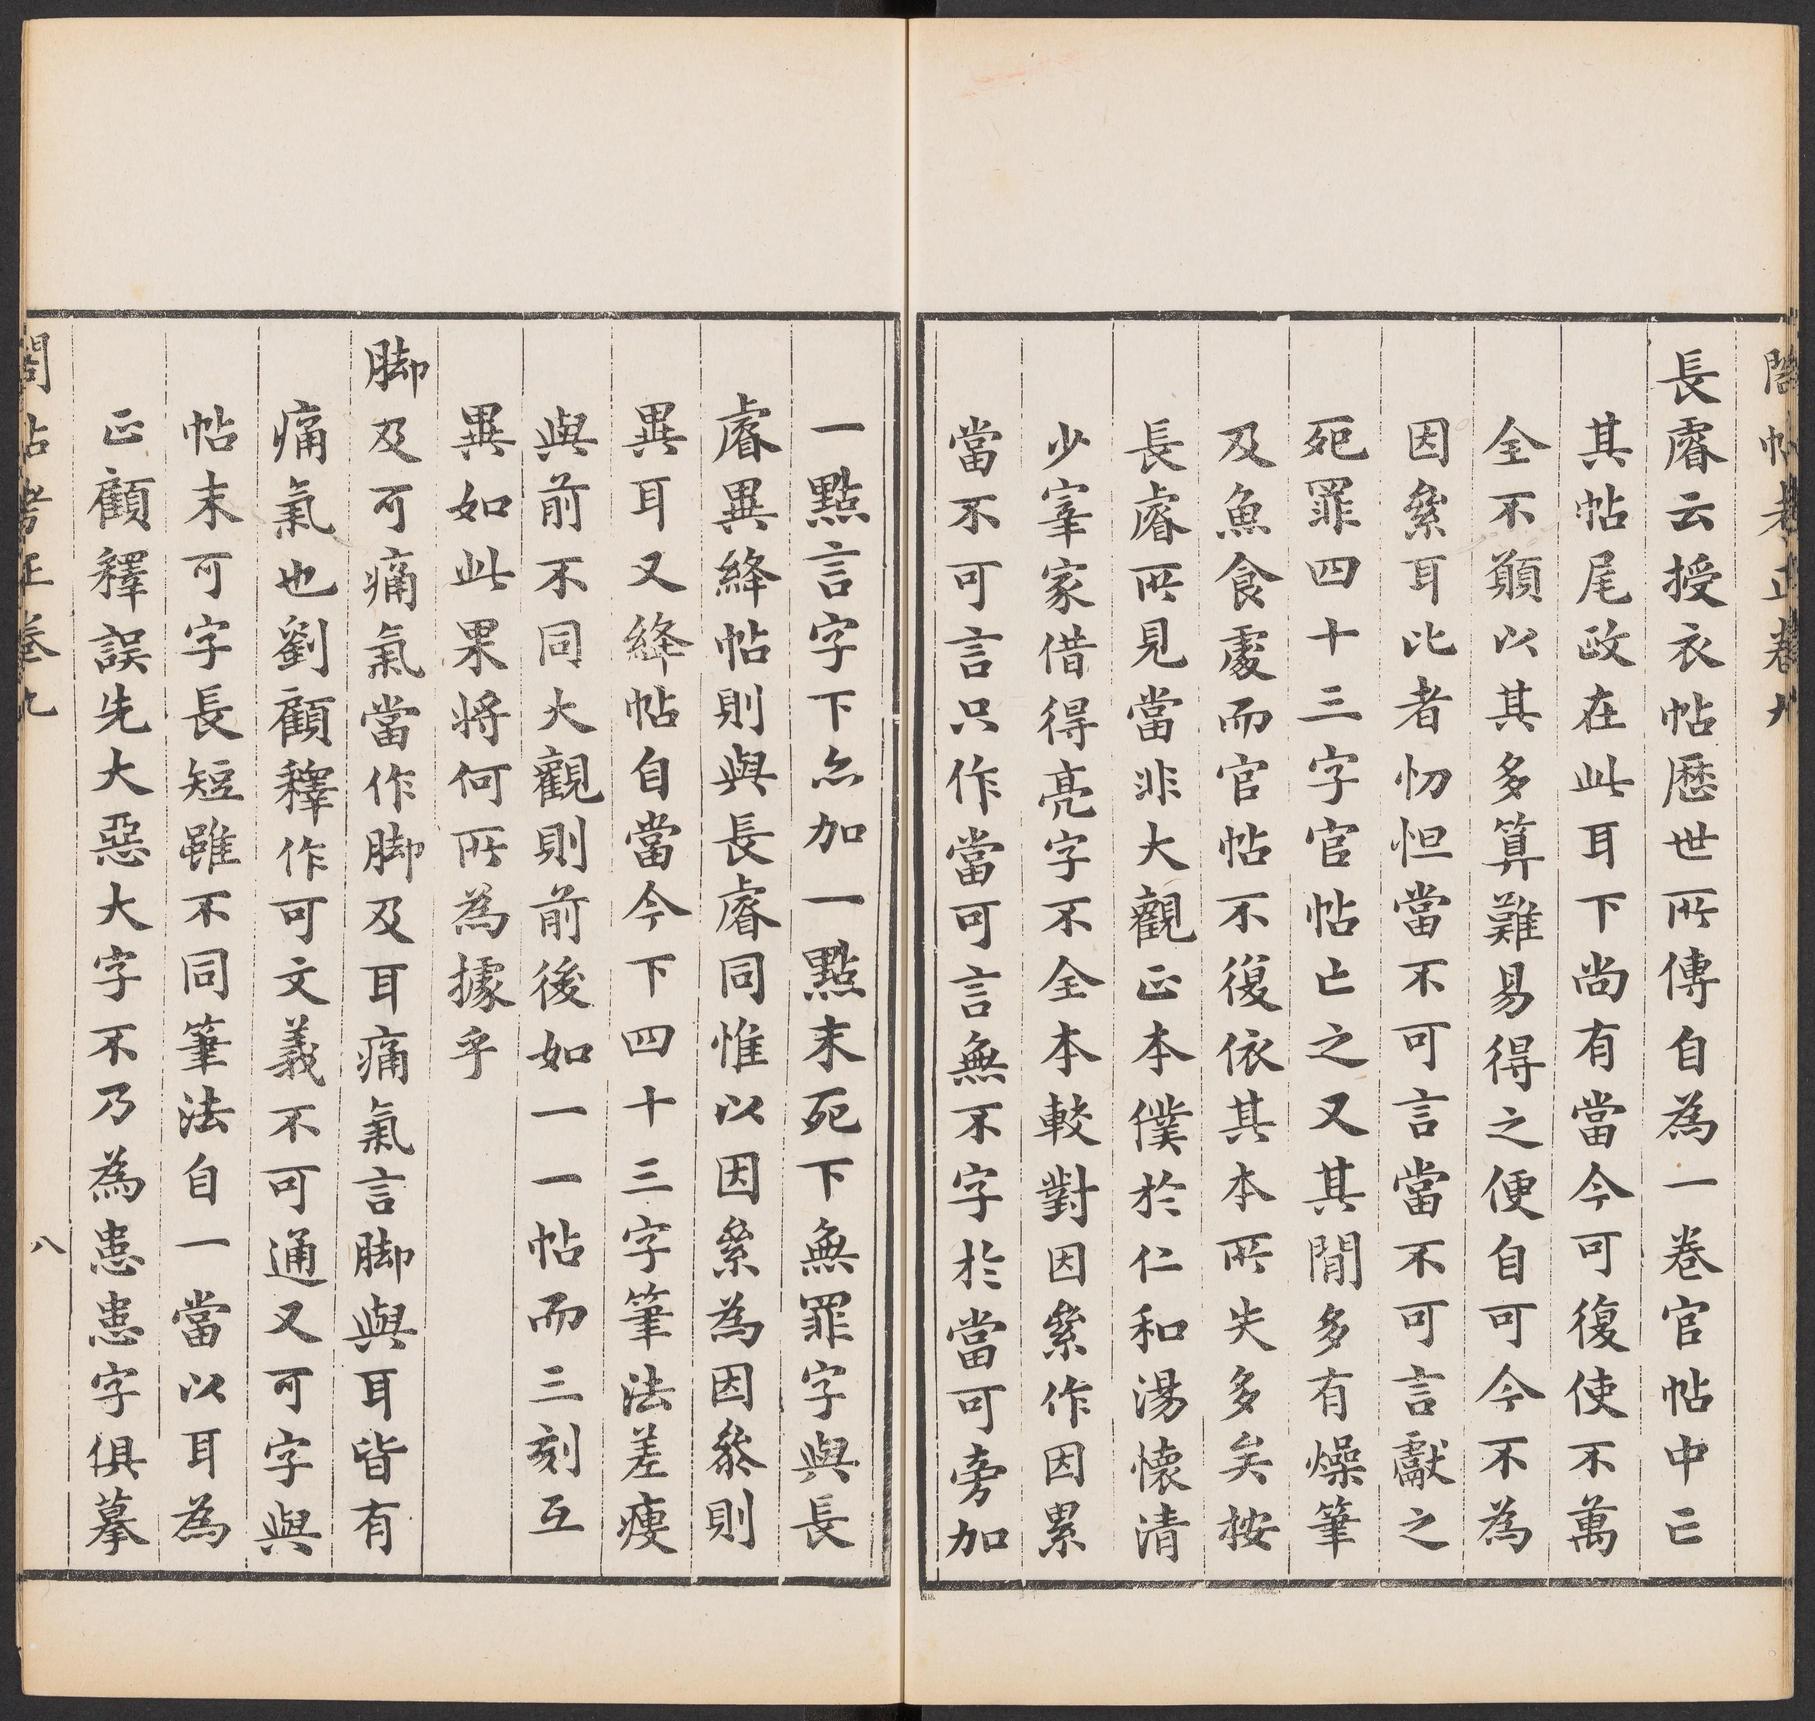 閣帖考正卷九
長睿云授衣帖歷世所傳自為一卷官帖中亡
其帖尾政在此耳下尚有當今可復使不萬
全不顓以其多算難易得之便自可今不為
因絫耳比者忉怛當不可言當不可言獻之
死罪四十三字官帖亡之又其閒多有燥筆
及魚食處而官帖不復依其本所失多矣按
長睿所見當非大觀正本僕於仁和湯懷清
少宰家借得亮字不全本較對因絫作因累
當不可言只作當可言無不字於當可旁加
一點言字下亦加一點末死下無罪字與長
睿異絳帖則與長睿同惟以因絫為因叅則
異耳又絳帖自當今下四十三字筆法差瘦
與前不同大觀則前後如一一帖而三刻互
異如此果將何所為據乎
脚及可痛氣當作脚及耳痛氣言脚與耳皆有
痛氣也劉顧釋作可文義不可通又可字與
帖末可字長短雖不同筆法自一當以耳為
正顧釋誤先大惡大字不乃為恚恚字俱摹
閣帖考正卷九
八